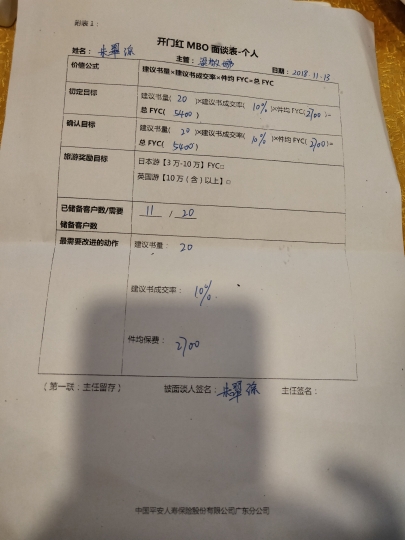 附表1：
开门红 MBO 面谈表-个人
姓名： 朱翠 主管： 梁 日期：2018.11.13
价值公式 建议书量×建议书成交率×件均 FYC=总 FYC
初定目标 建议书量( 20 )×建议书成交率( 10% )×件均 FYC(2700 )=
总 FYC( 5400 )
确认目标 建议书量( 20 )×建议书成交率( 10% )×件均 FYC(2700)=
总 FYC( 5400 )
旅游奖励目标 日本游【3 万-10 万】FYC□
英国游【10 万（含）以上】□
已储备客户数/需要 11 / 20
储备客户数
最需要改进的动作 建议书量： 20
建议书成交率： 10%
件均保费： 2700
（第一联：主任留存） 被面谈人签名： 朱翠 主任签名：
中国平安人寿保险股份有限公司广东分公司